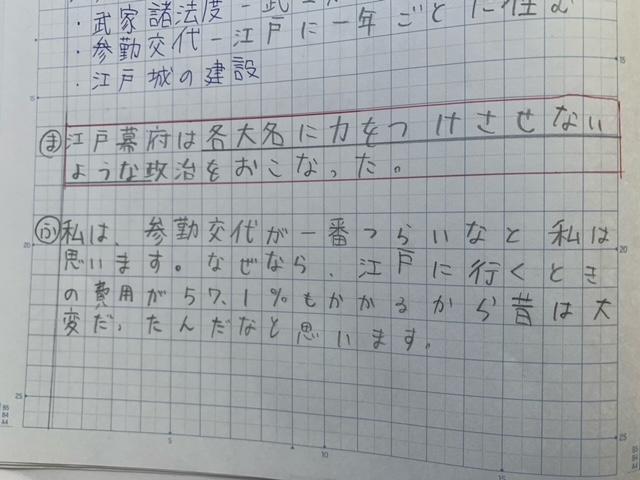 ・武家諸法度－武
・参勤交代－江戸に一年ごとに住む
・江戸城の建設
ま 江戸幕府は各大名に力をつけさせない
ような政治をおこなった。
ふ 私は、参勤交代が一番つらいなと私は
思います。なぜなら、江戸に行くとき
の費用が57.1%もかかるから昔は大
変だったんだなと思います。
20
25
5
10
15
15
20
25
B5
B4
A4